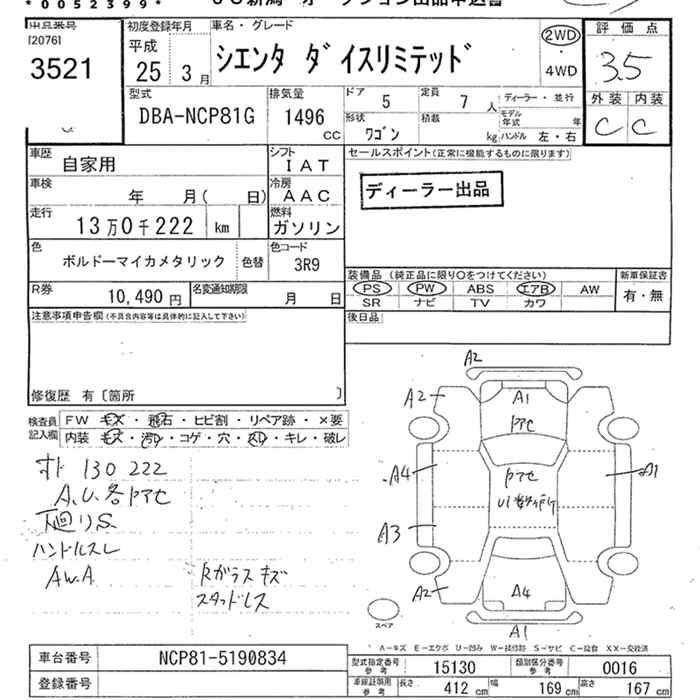 *0052399*
[2076]
3521
初度登録年月
平成
25 3月
車名・グレード
シエンタ ダイスリミテッド
2WD
4WD
評価点
3.5
外装 内装
C C
型式
DBA-NCP81G
排気量
1496
CC
ドア 5
形状 ワゴン
定員 7 人
積載 kg
ディーラー・並行
モデル年式 年
ハンドル 左・右
車歴 自家用
シフト IAT
車検 年 月( 日)
冷房 AAC
走行 13万0千222 km
燃料 ガソリン
色 ボルドーマイカメタリック 色替
色コード 3R9
R券 10,490 円
名変通知期限 月 日
セールスポイント(正常に機能するものに限ります)
ディーラー出品
装備品 (純正品に限り○をつけてください)
PS PW ABS エアB AW
SR ナビ TV カワ
新車保証書
有・無
後日品
注意事項申告欄(不具合内容等は具体的に記入して下さい)
修復歴 有〔箇所 〕
検査員記入欄
FW キズ・飛石・ヒビ割・リペア跡・×要
内装 キズ・汚レ・コゲ・穴・スレ・キレ・破レ
130222
A.U.各トアセ
下廻りS
ハンドルスレ
AW.A
Rガラスキズ
スタッドレス
A2
A2
A1
トアセ
A4
トアセ
A1
A3
A2
A4
A1
スペア
A-キズ E-エクボ U-凹み W-補修跡 S-サビ C-腐食 XX-交換済
車台番号 NCP81-5190834
登録番号
型式指定番号 参考 15130
類別区分番号 参考 0016
車線証明用 参考 長さ 412 cm 幅 169 cm 高さ 167 cm